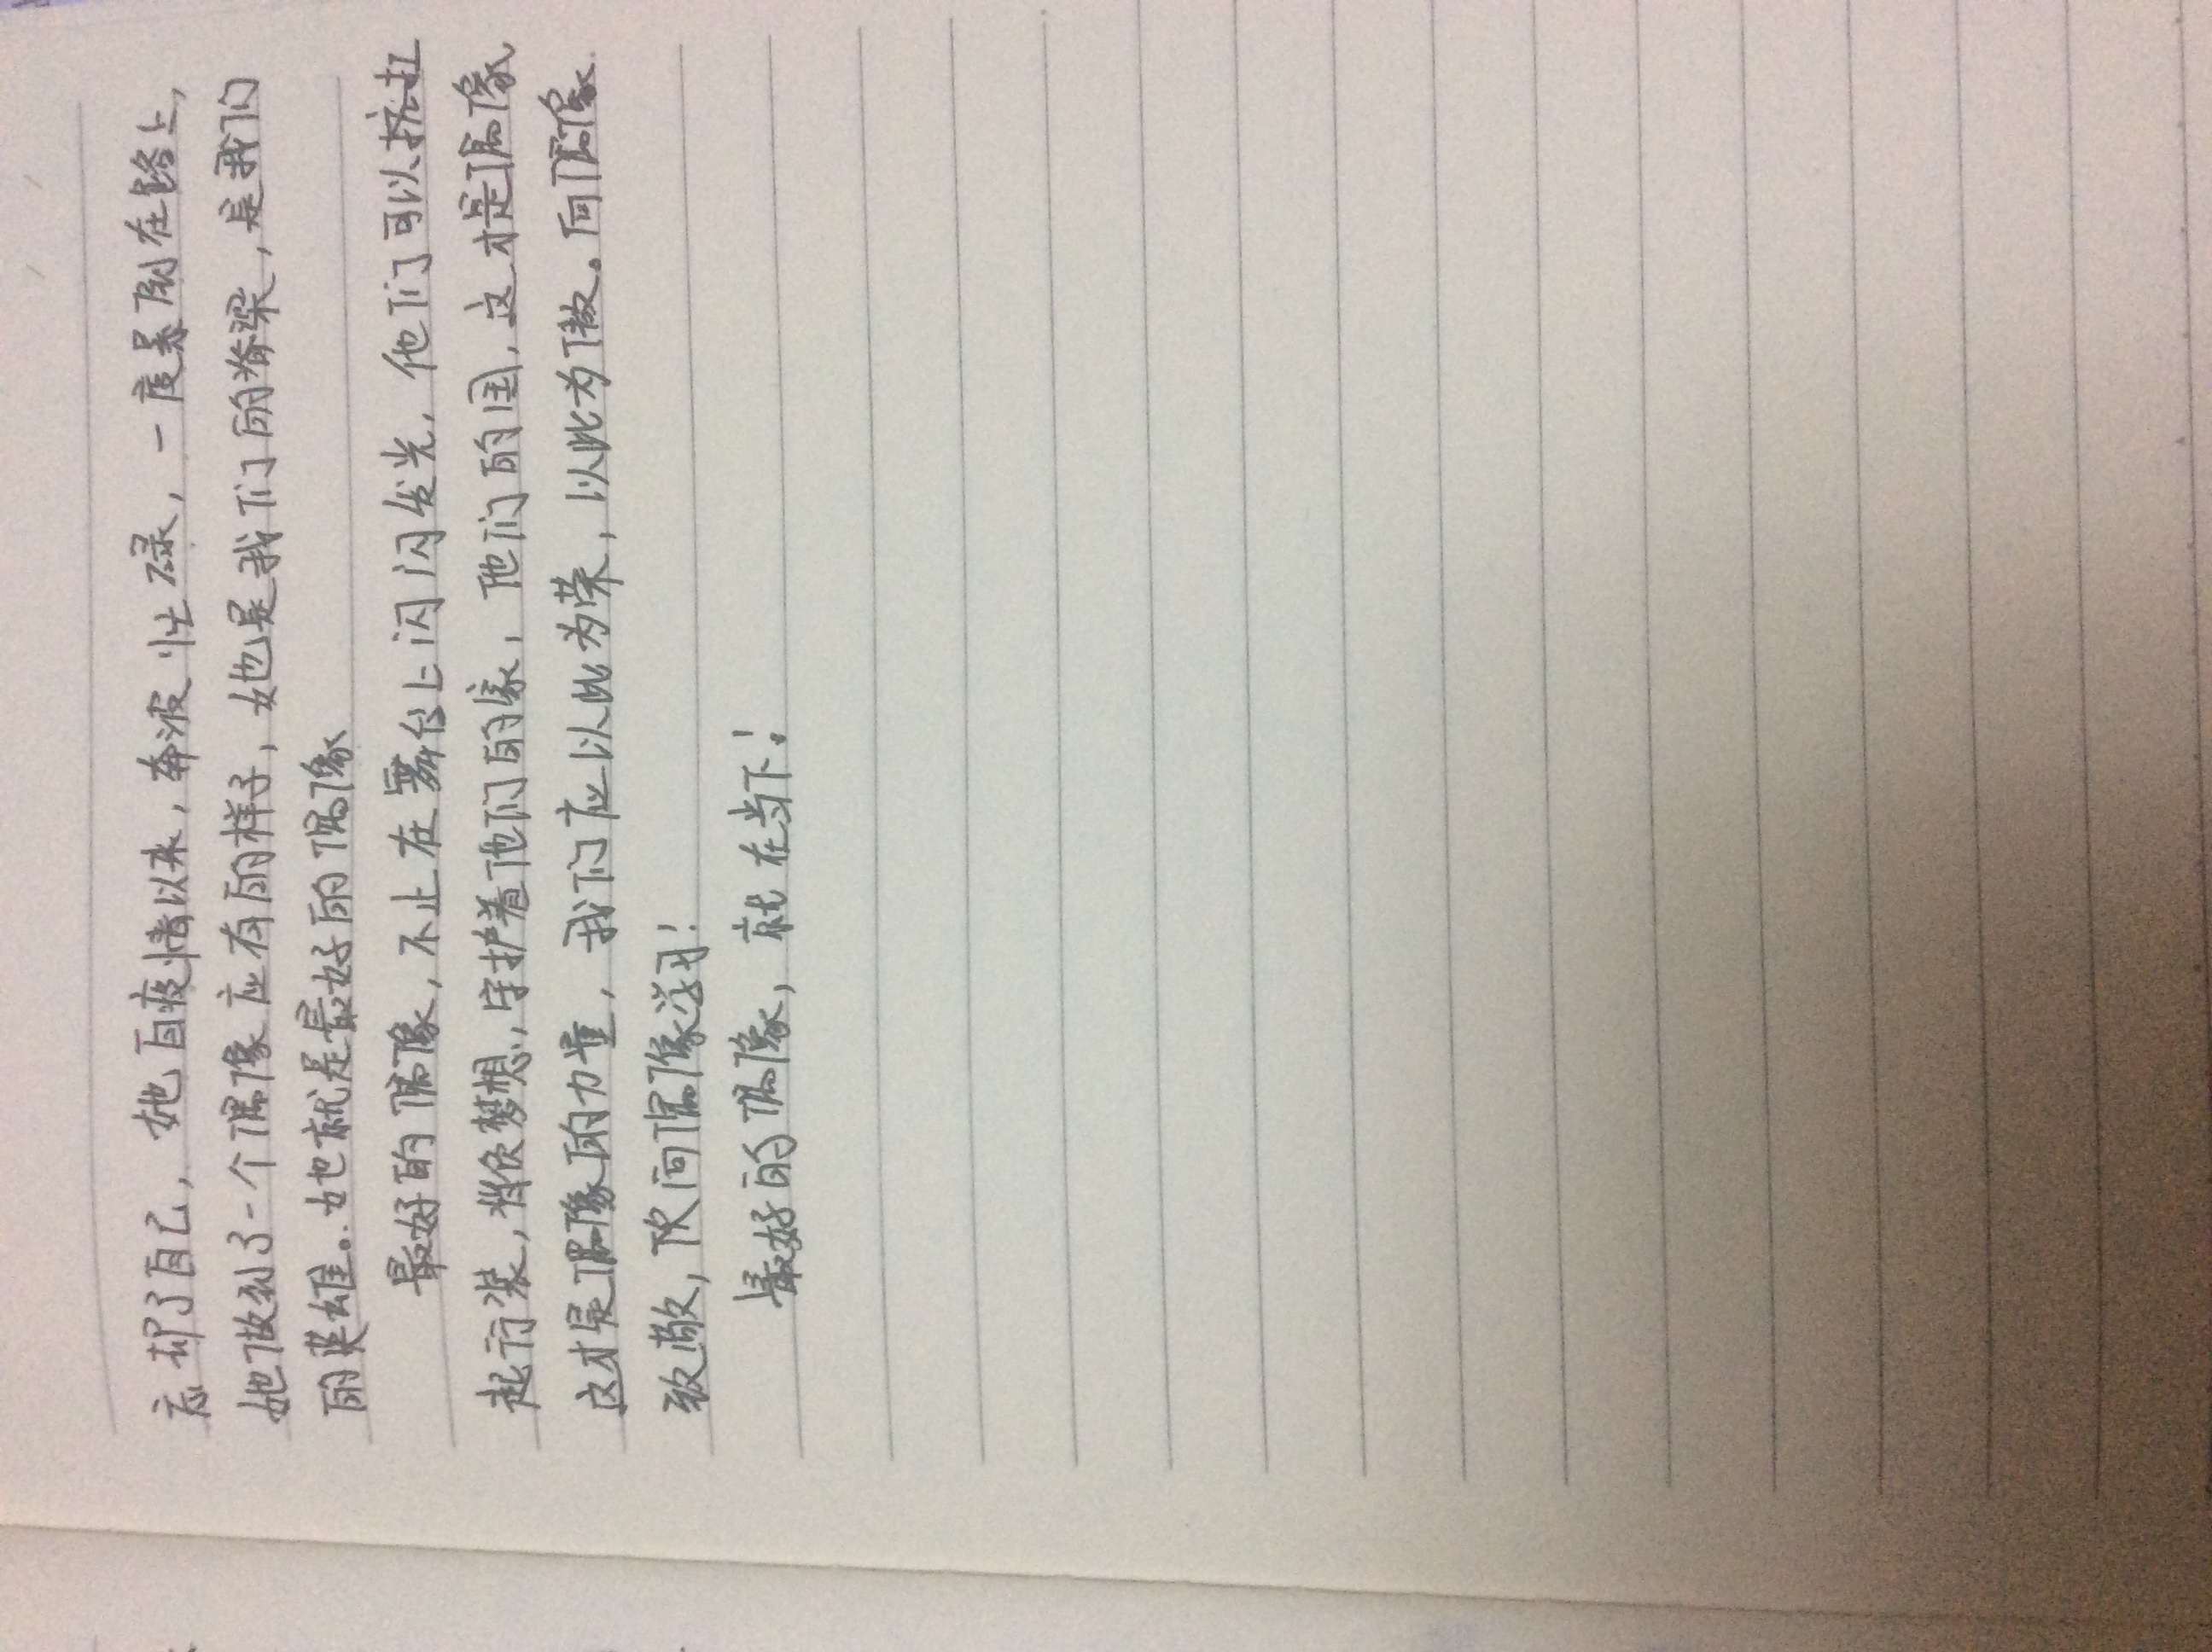 忘却了自己，她自疫情以来，奔波忙碌，一度累倒在路上，
她做到了一个偶像应有的样子，她也是我们的脊梁，是我们
的英雄。她也就是最好的偶像
最好的偶像，不止在舞台上闪闪发光，他们可以挤扛
起行装，背负梦想，守护着他们的家，他们的国，这才是偶像
这才是偶像的力量，我们应以此为荣，以此为傲。向偶像
致敬，向偶像学习！
最好的偶像，就在当下！